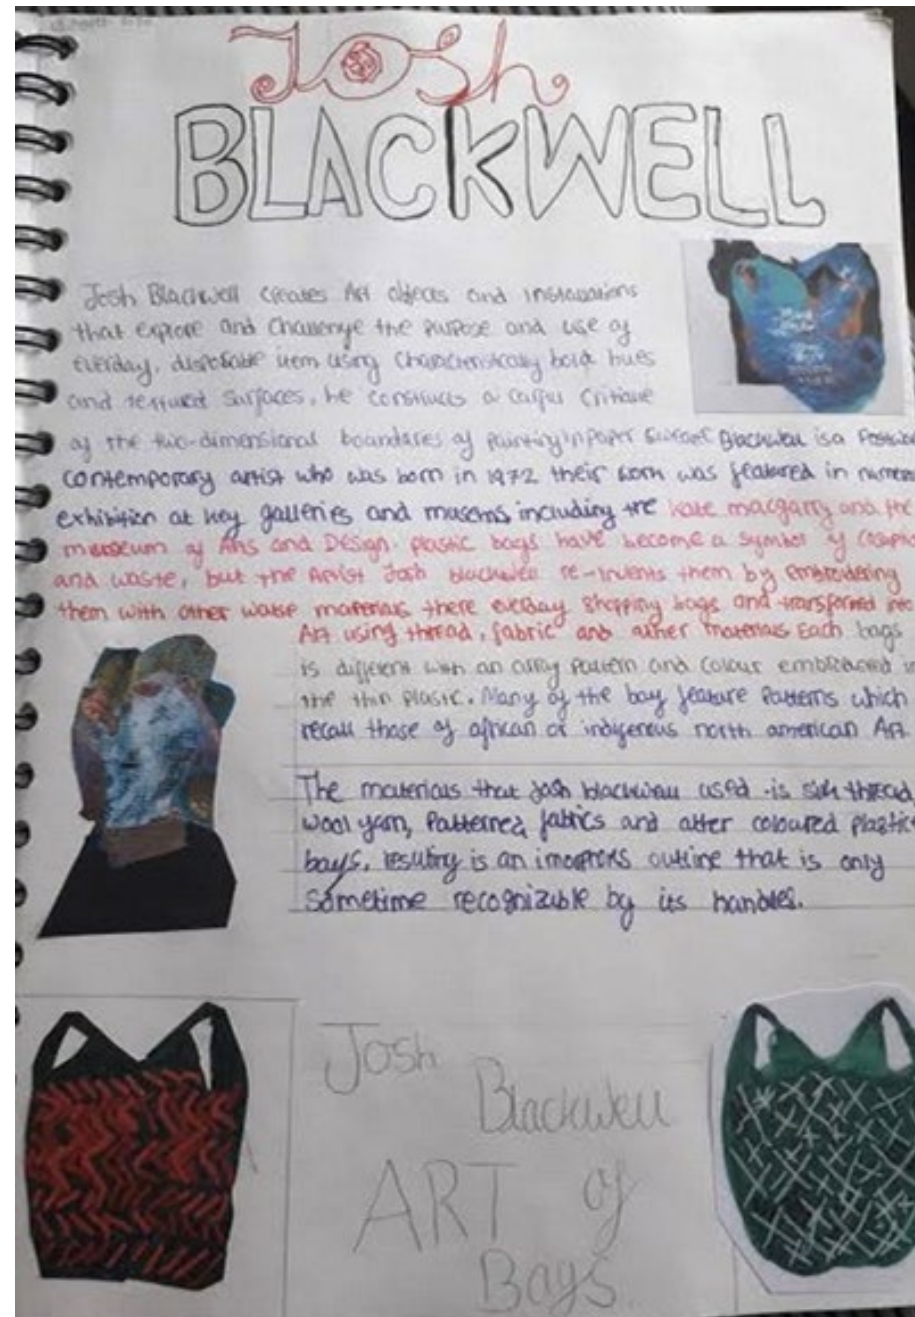 Josh
BLACKWELL
Josh Blackwell creates Art objects and installations
that explore and challenge the purpose and use of
everyday, disposable item using characteristically bold hues
and textured surfaces, he constructs a careful critique
of the two-dimensional boundaries of painting in paper Blackwell is a
contemporary artist who was born in 1972 their work was featured in
exhibition at key galleries and museums, including the kate macgarry and the
museum of Arts and Design. plastic bags have become a symbol of
and waste, but the Artist Josh blackwell re-invents them by embroidering
them with other waise materials there everday shopping bags and transformed
Art using thread, fabric and other materials Each bags
is different with an array pattern and colour
the thin plastic. Many of the bag feature Patterns which
recall those of african or indigenous north american Art.
The materials that Josh blackwell used is silk thread
wool yarn, Patterned fabrics and other coloured plastic
bags, resulting is an outline that is only
sometime recognizable by its handles.
Josh
Blackwell
ART of
Bags.